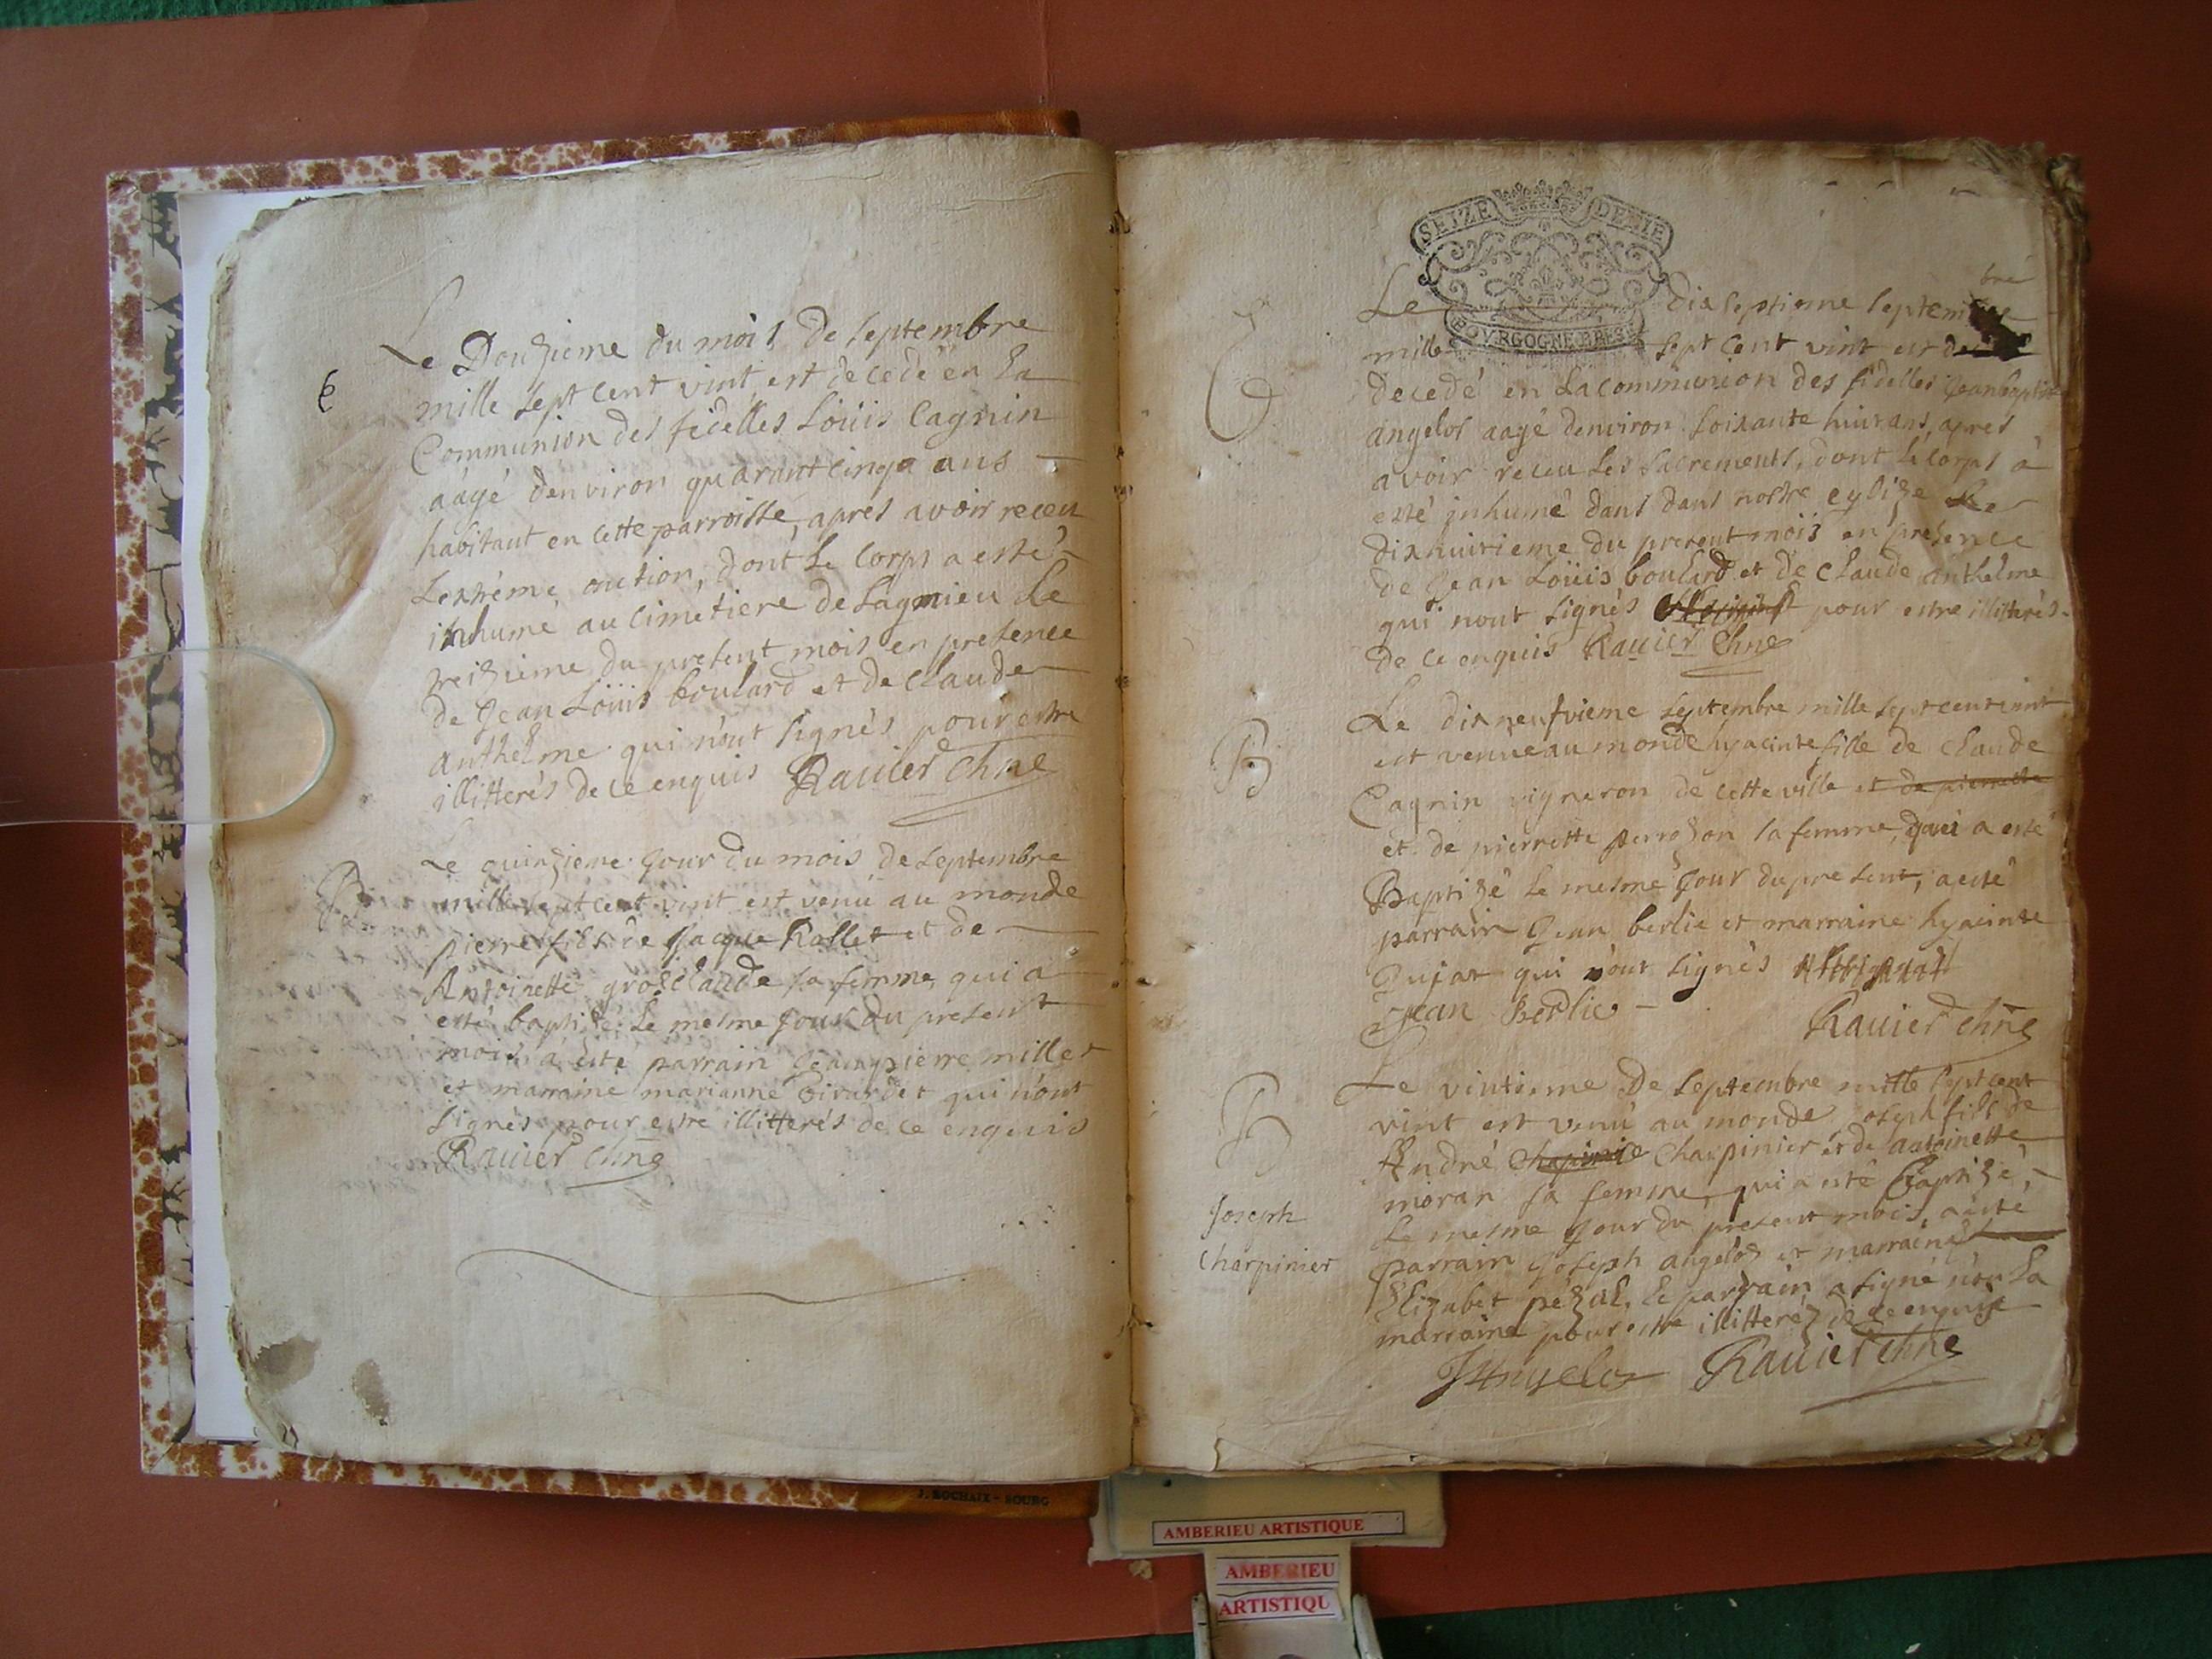 Le Douzieme du mois de septembre
mille sept cent vint est decedé en la
Communion des fidelles Loüis Cagnin
aàgé d'environ quarant cinq ans
habitant en cette parroisse, apres avoir receu
Lextréme onction, dont le corps a esté
inhumé au cimetiere de Lagnieu Le
treizieme du present mois en presence
de Jean Loüis boulard et de claude
anthelme qui n'ont signés pour estre
illitterés de ce enquis Rauier chne
Le quinzieme Jour du mois de septembre
mille sept cent vint est venu au monde
pierre fils de Jacque Rollet et de
Antoinette grosclaude sa femme, qui a
esté baptizé le mesme Jour du present
mois, a esté parrain Jeanpierre millet
et marraine marianne Girardet qui n'ont
signés pour estre illitterés de ce enquis
Rauier chne
SEIZE DE MIE
BOVRGOGNE BRESSE
Le dix septieme septembre
bre
mille sept cent vint est
decedé en La communion des fidelles Jeanbaptiste
angelos aagé denviron soixante huit ans, apres
avoir receu les sacrements, dont le corps a
esté inhumé dans dans nostre eglize Le
dixhuitieme du present mois en presence
de Jean Loüis boulard et de claude anthelme
qui nont signés pour estre illitterés
de ce enquis Rauier Chne
Le dixneufvieme septembre mille sept cent vint
est venüe au monde hyacinte fille de claude
Cagnin vigneron de cette ville et de pierrette
et de pierrette perrozon sa femme, qui a esté
Baptizé le mesme Jour du present, a esté
parrain Jean berlie et marraine hyacinte
Dujat qui n'ont signés
Jean Berlie
Rauier chne
Le vintieme De septembre mille sept cent
vint est venu au monde Joseph fils de
André Charpinier et de antoinette
moran sa femme, qui a esté Baptizé,
Le mesme Jour du present mois, a esté
parrain Joseph angelos et marraine
Elizabet le parrain a signé non la
marraine pour estre illitteréz de ce enquise
JAngelos Rauier chne
Joseph
Charpinier
J. ROCHAIX - BOURG
AMBERIEU ARTISTIQUE
AMBERIEU
ARTISTIQU